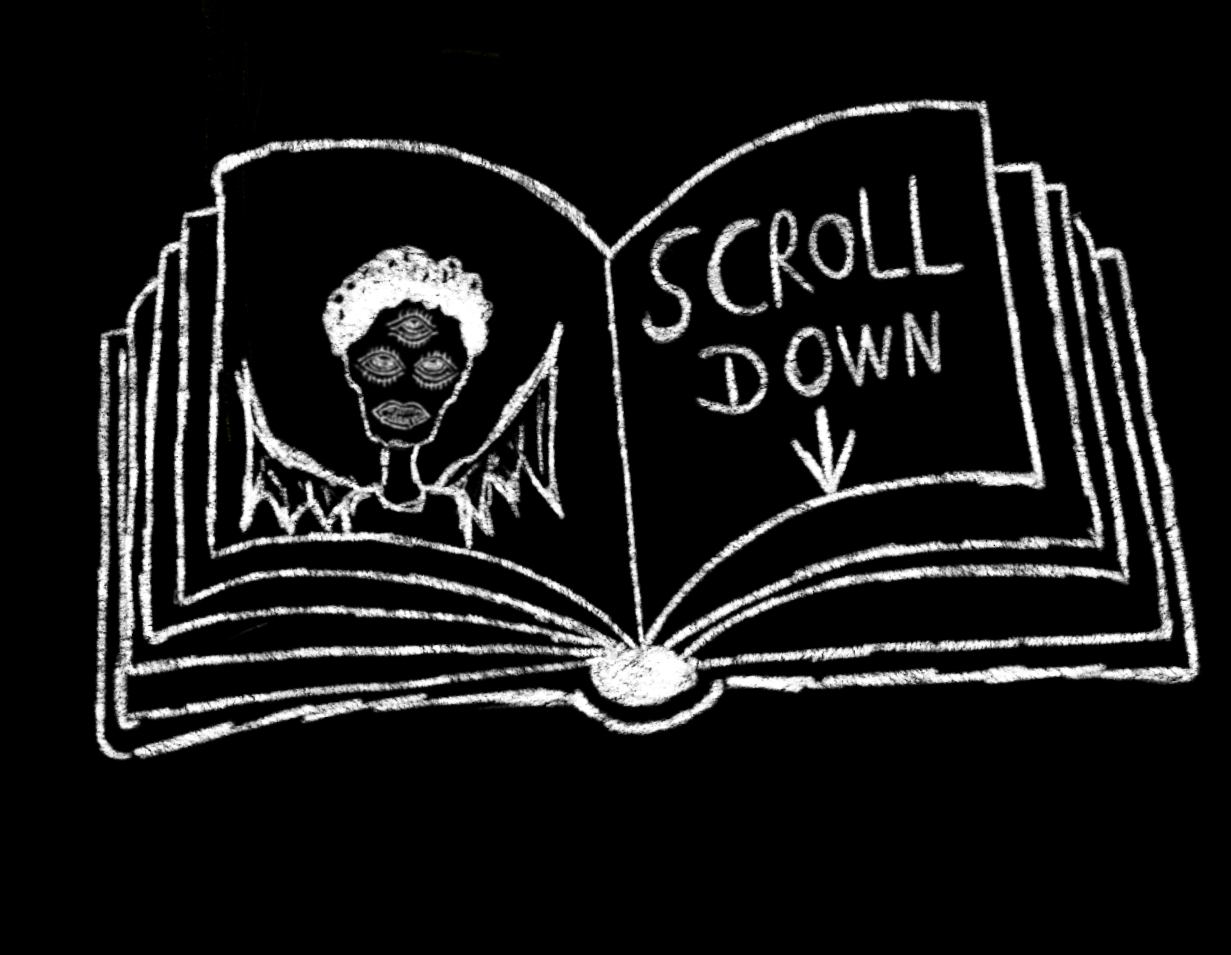 SCROLL
DOWN